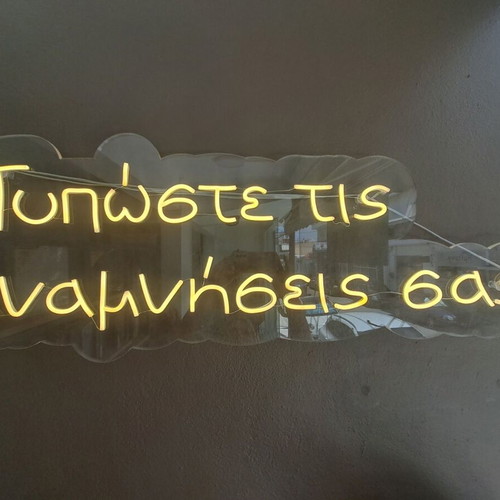 Τυπώστε τις
ναμνήσεις σας